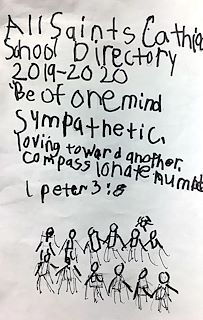 All Saints Cathic
School Directory
2019-2020
"Be of one mind
Sympathetic,
loving toward another,
compassionate humble
1 peter 3:8